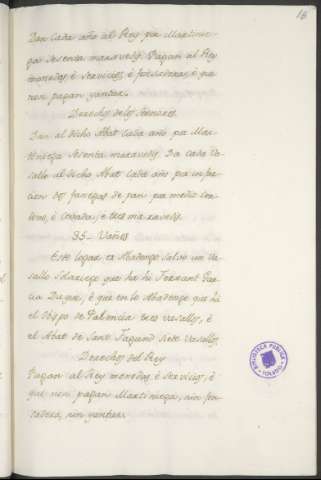 18
Dan cada año al Rey por Martinie-
ga sesenta maravedis. Pagan al Rey
monedas, é servicios, é fonsaderas, é que
non pagan yantar.
Derechos delos Señores
Dan al dicho Abat cada año por Mar-
tiniega sesenta maravedis. Da cada va-
sallo al dicho Abat cada año por infur-
cion dos fanegas de pan por medio cen-
teno, é cebada, e tres maravedis.
35 - Vañes
Este logar es Abadengo salvo un va-
sallo solariego que ha hi Ferrant Gar-
cia Duque, é que en lo Abadengo que hi
el Obispo de Palencia tres vasallos, é
el Abat de Sant Fagund siete vasallos.
Derechos del Rey
Pagan al Rey monedas, é servicios, é
que non pagan Martiniega, nin fon-
sadera, nin yantar.
BIBLIOTECA PUBLICA